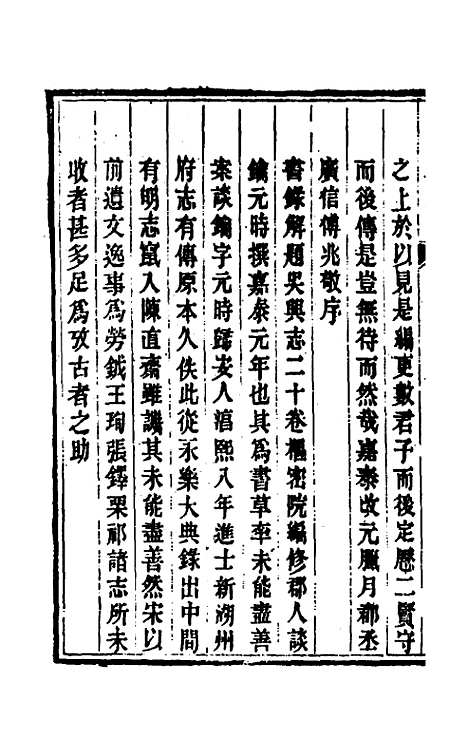 之上於以見是編更數君子而後定歷二賢守
而後傳是豈無待而然哉嘉泰改元臘月郡丞
廣信傅兆敬序
書錄解題吳興志二十卷樞密院編修郡人談
鑰元時撰嘉泰元年也其爲書草率未能盡善
案談鑰字元時歸安人淳熙八年進士新湖州
府志有傳原本久佚此從永樂大典錄出中間
有明志竄入陳直齋雖譏其未能盡善然宋以
前遺文逸事爲勞鉞王珣張鐸栗祁諸志所未
收者甚多足爲攷古者之助